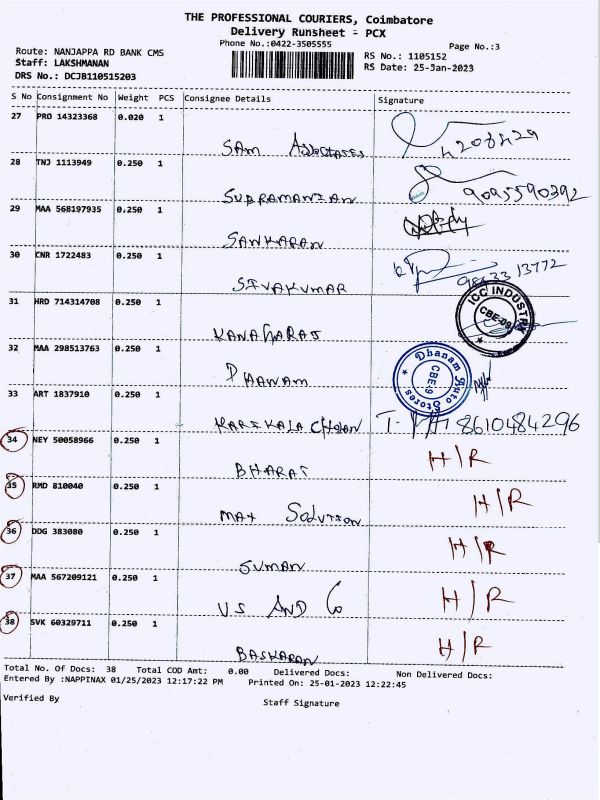 THE PROFESSIONAL COURIERS, Coimbatore
Delivery Runsheet = PCX
Phone No.:0422-3505555
Page No.:3
Route: NANJAPPA RD BANK CMS
RS No.: 1105152
Staff: LAKSHMANAN
RS Date: 25-Jan-2023
DRS No.: DCJB110515203
S No Consignment No Weight PCS Consignee Details Signature
27 PRO 14323368 0.020 1
SAM ASSOCIATES
28 TNJ 1113949 0.250 1
SUBRAMANIAN 9095590392
29 MAA 568197935 0.250 1
SANKARAN
30 CNR 1722483 0.250 1
SIVAKUMAR
31 HRD 714314708 0.250 1
ICC INDUSTRY
CBE-09
KANAGARAJ
32 MAA 298513763 0.250 1
Dhanam Auto Stores
CBE-19
DHANAM
33 ART 1837910 0.250 1
KARIKALA CHOLAN 8610484296
34 NEY 50058966 0.250 1 H/R
BHARAT
35 RMD 810040 0.250 1 H/R
MAX SOLUTION
36 DDG 383080 0.250 1 H/R
SUMAN
37 MAA 567209121 0.250 1 H/R
VS AND Co
38 SVK 60329711 0.250 1 H/R
BASKARAN
Total No. Of Docs: 38 Total COD Amt: 0.00 Delivered Docs: Non Delivered Docs:
Entered By :NAPPINAX 01/25/2023 12:17:22 PM Printed On: 25-01-2023 12:22:45
Verified By
Staff Signature